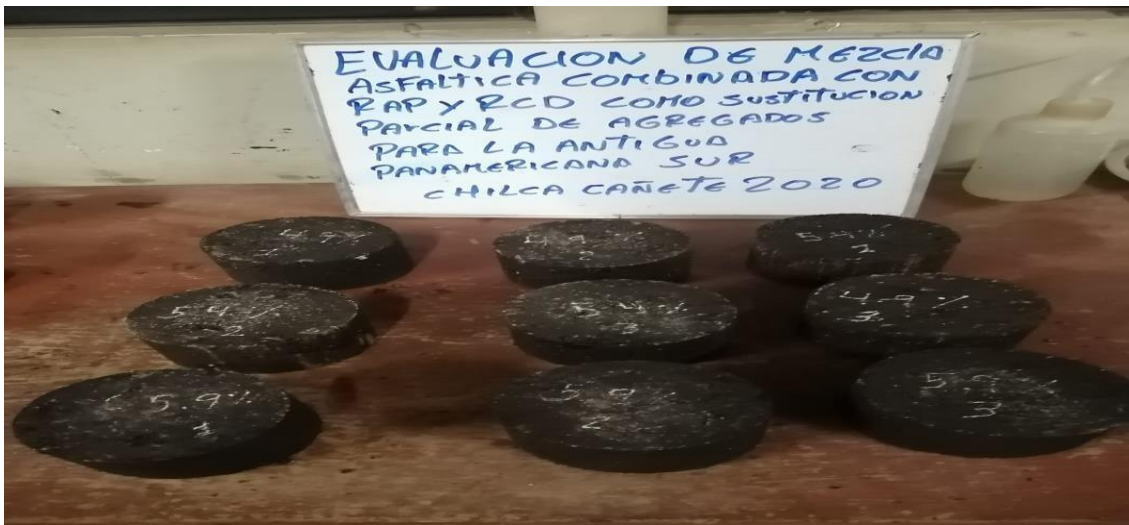 EVALUACION DE MEZCLA
ASFALTICA COMBINADA CON
RAP Y RCD COMO SUSTITUCION
PARCIAL DE AGREGADOS
PARA LA ANTIGUA
PANAMERICANA SUR
CHILCA CAÑETE 2020
4.9%
4.9
2
5.4%
1
5.4%
2
5.4%
3
4.9%
3
5.9%
1
5.9
2
5.9%
3